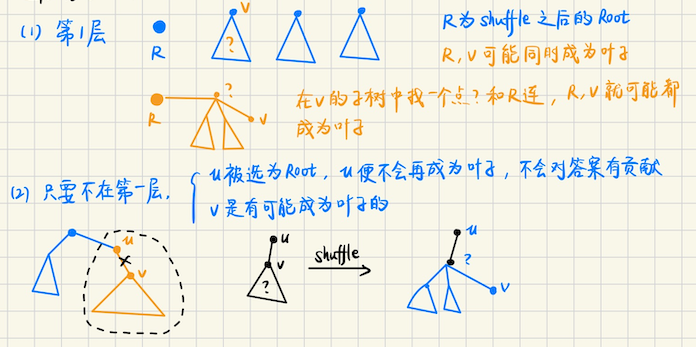 (1) 第1层
R
v
?
R为shuffle之后的Root
R,v可能同时成为叶子
R
?
v
在v的子树中找一个点?和R连,R,v就可能都
成为叶子
(2) 只要不在第一层,
u被选为Root,u便不会再成为叶子,不会对答案有贡献
v是有可能成为叶子的
u
v
u
v
?
shuffle
u
?
v